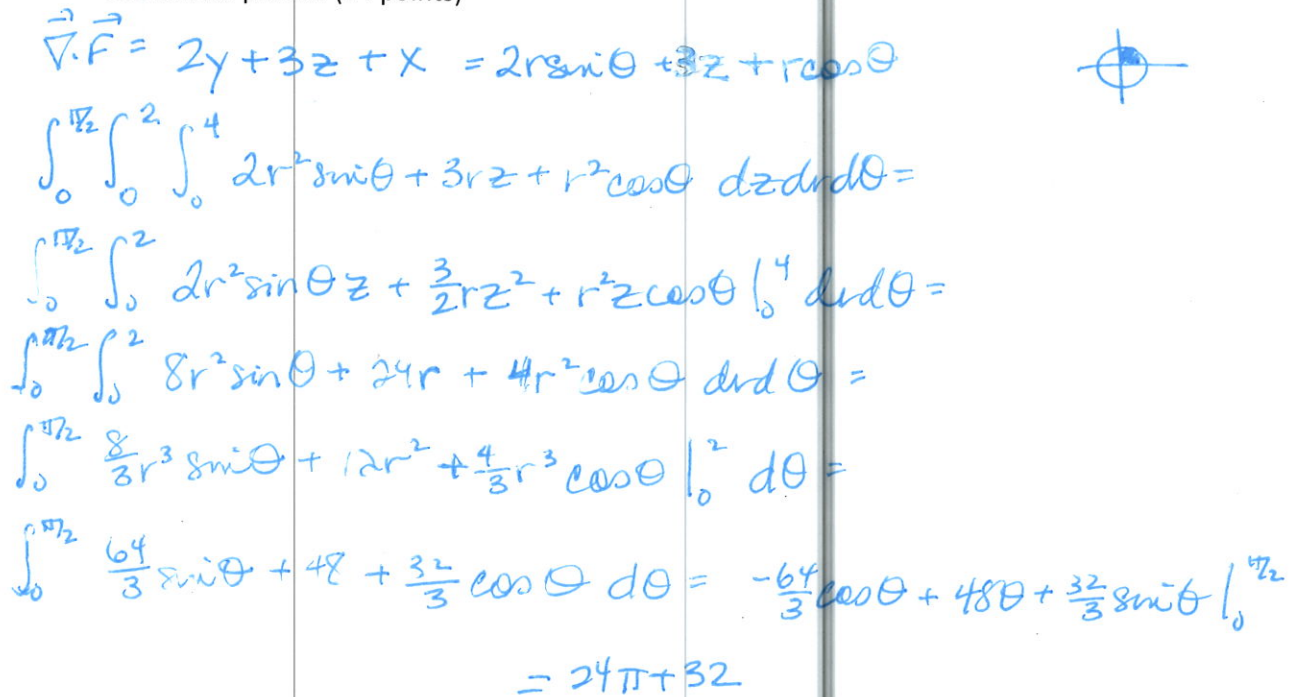 points)
∇⃗·F⃗ = 2y + 3z + x = 2r sinθ + 3z + r cosθ
∫₀^{π/2} ∫₀² ∫₀⁴ 2r² sinθ + 3rz + r² cosθ dz dr dθ =
∫₀^{π/2} ∫₀² 2r² sinθ z + 3/2 rz² + r² z cosθ |₀⁴ dr dθ =
∫₀^{π/2} ∫₀² 8r² sinθ + 24r + 4r² cosθ dr dθ =
∫₀^{π/2} 8/3 r³ sinθ + 12r² + 4/3 r³ cosθ |₀² dθ =
∫₀^{π/2} 64/3 sinθ + 48 + 32/3 cosθ dθ = -64/3 cosθ + 48θ + 32/3 sinθ |₀^{π/2}
= 24π + 32